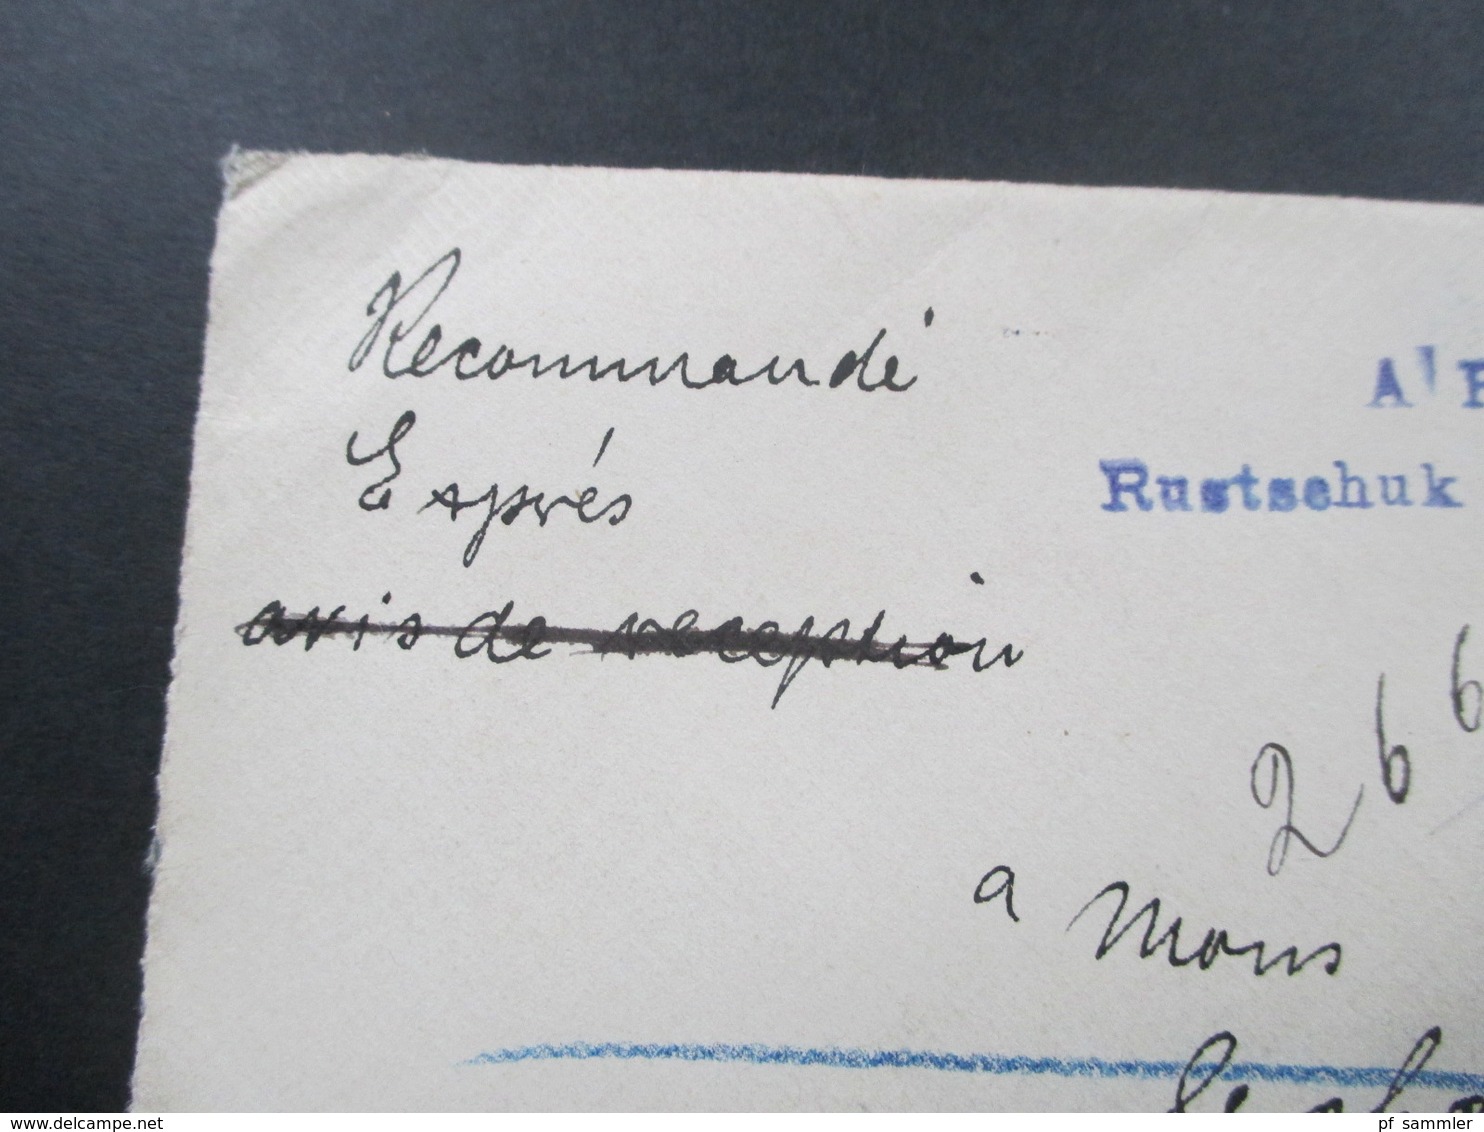 Recommandé
Exprés
avis de reception
Rustschuk
266
a Mons
www.delcampe.net
pf_sammler